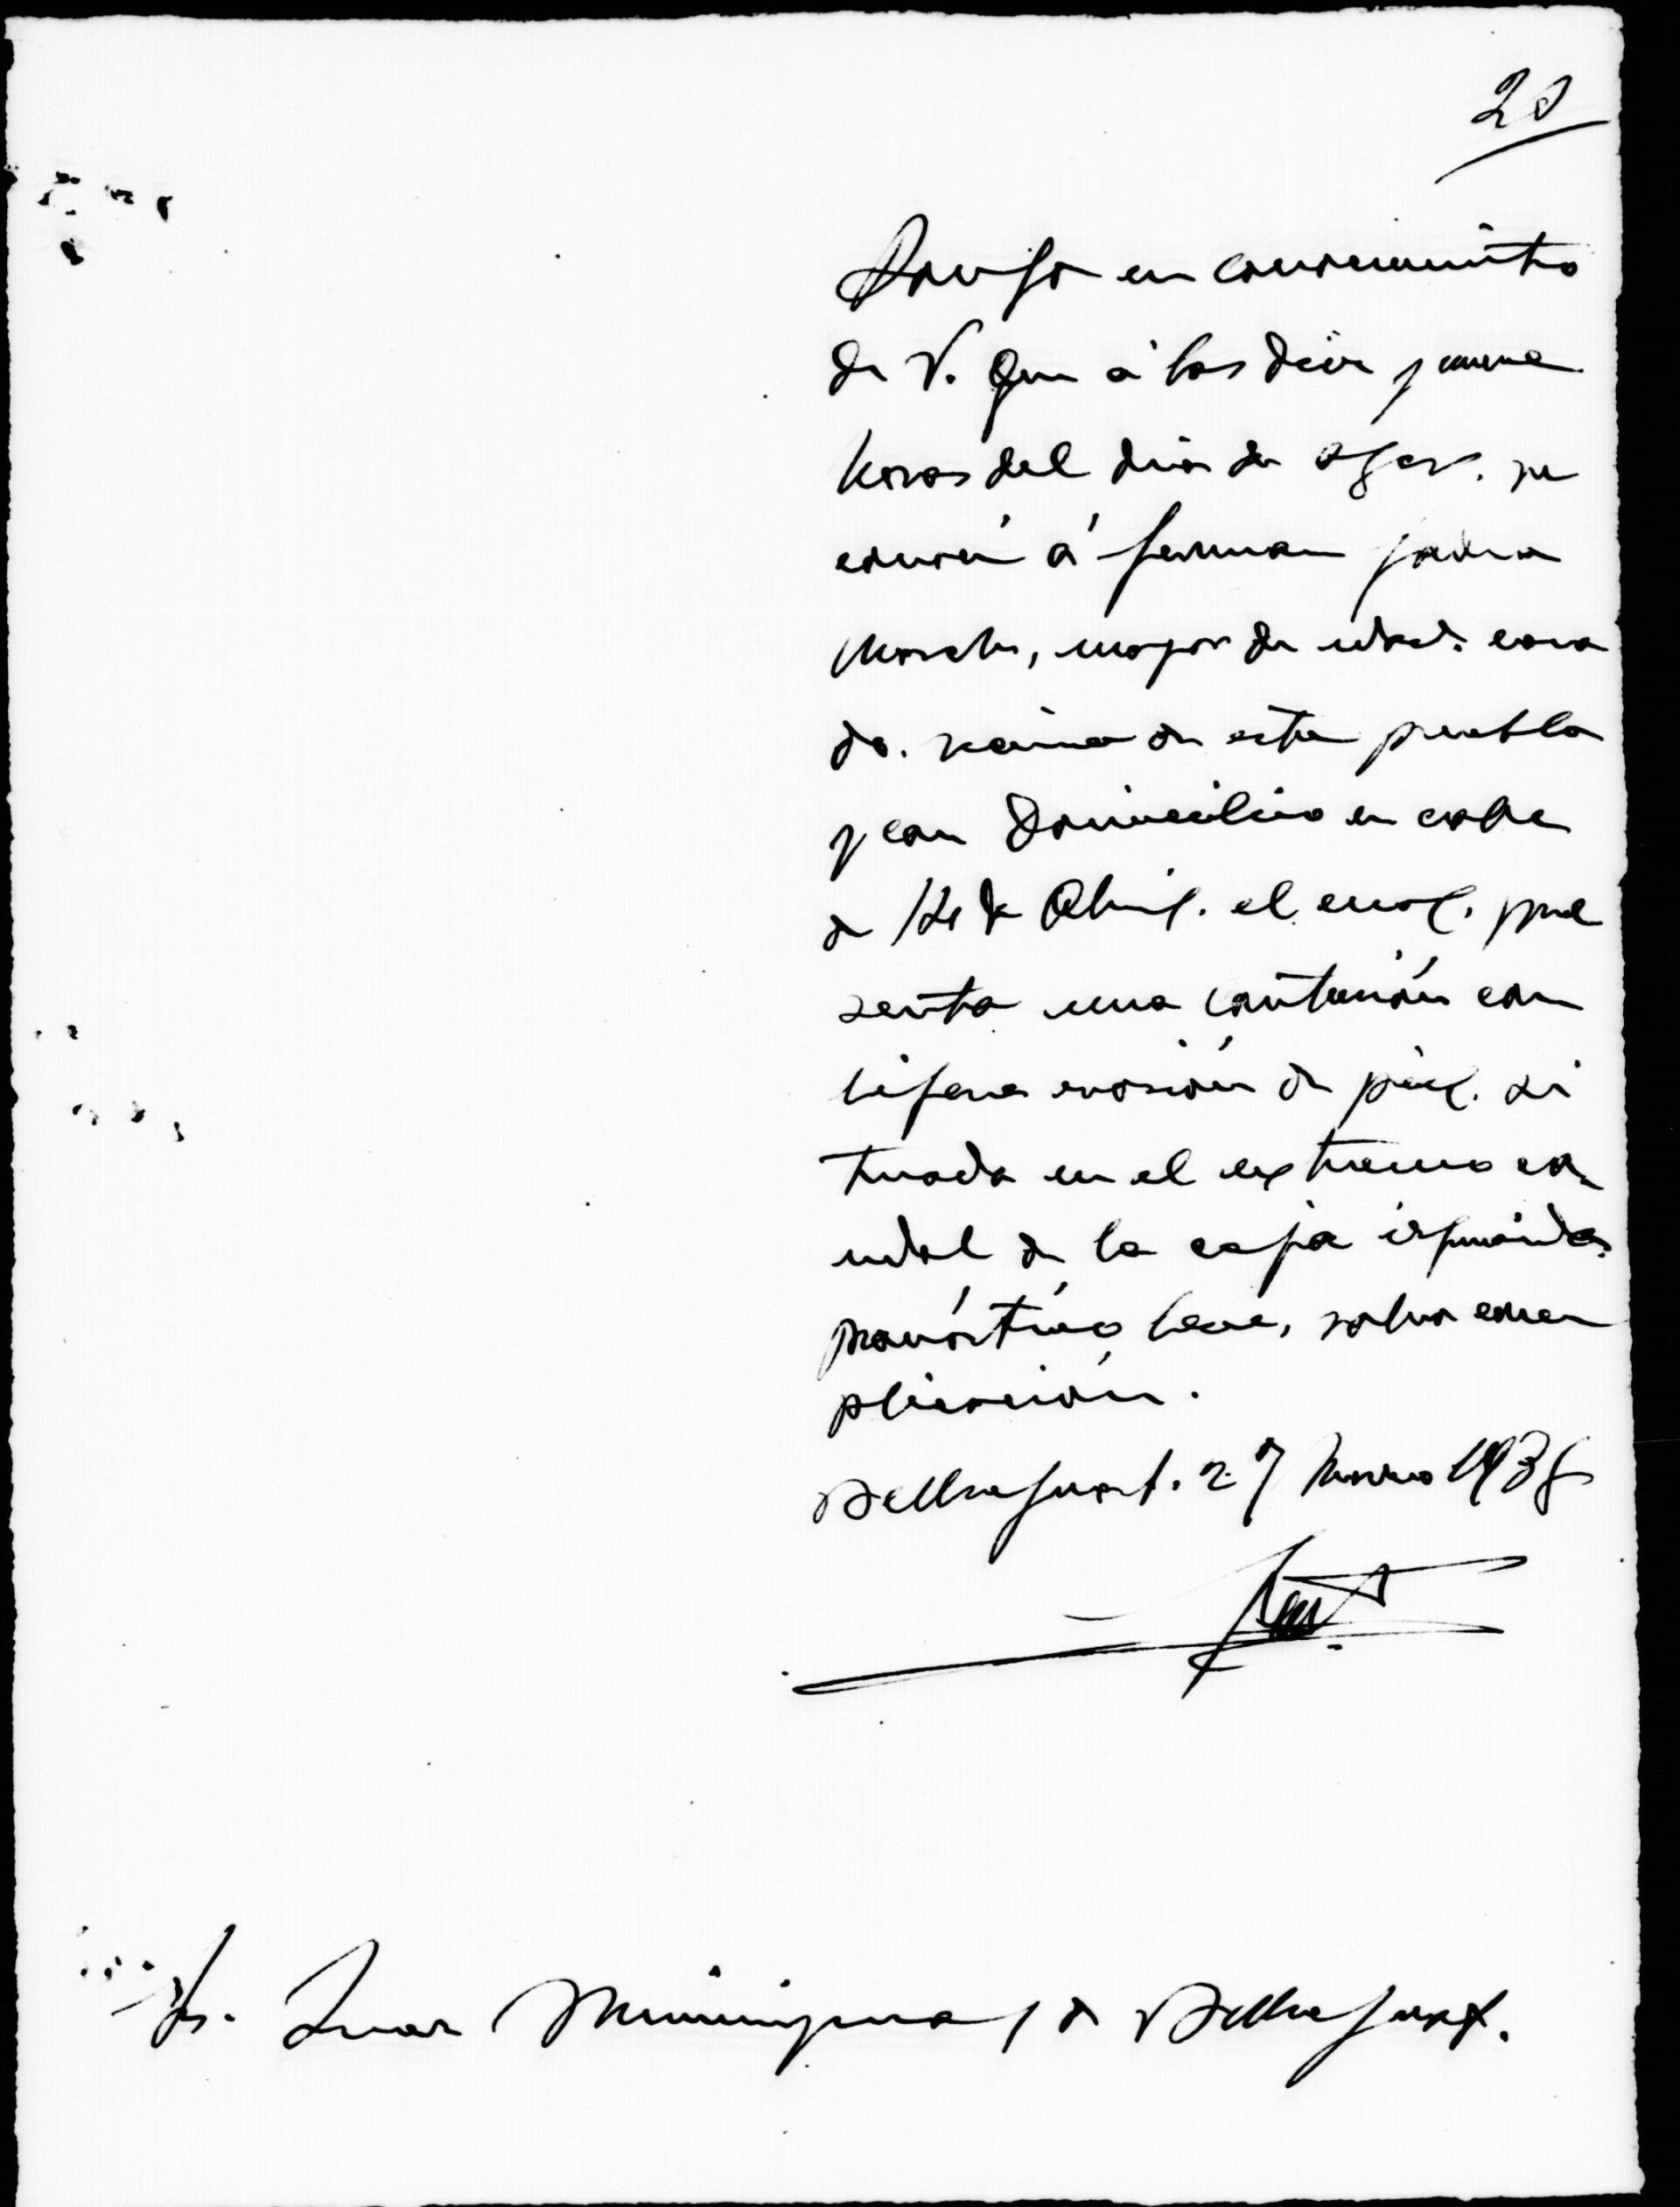 20
Pongo en conocimiento
de V. Que á las diez y nueve
horas del dia de ayer. se
curó á German
March, mayor de edad. casa
do. vecino de este pueblo
y con Domicilio en calle
de 14 de Abril. el cual, pre
senta una contusión con
ligera erosión de piel. si
tuada en el extremo ca
udal de la ceja izquierda.
pronóstico leve, salvo com
plicación.
Bellreguart. 27 1936
Sr. Juez Municipal de Bellreguart.